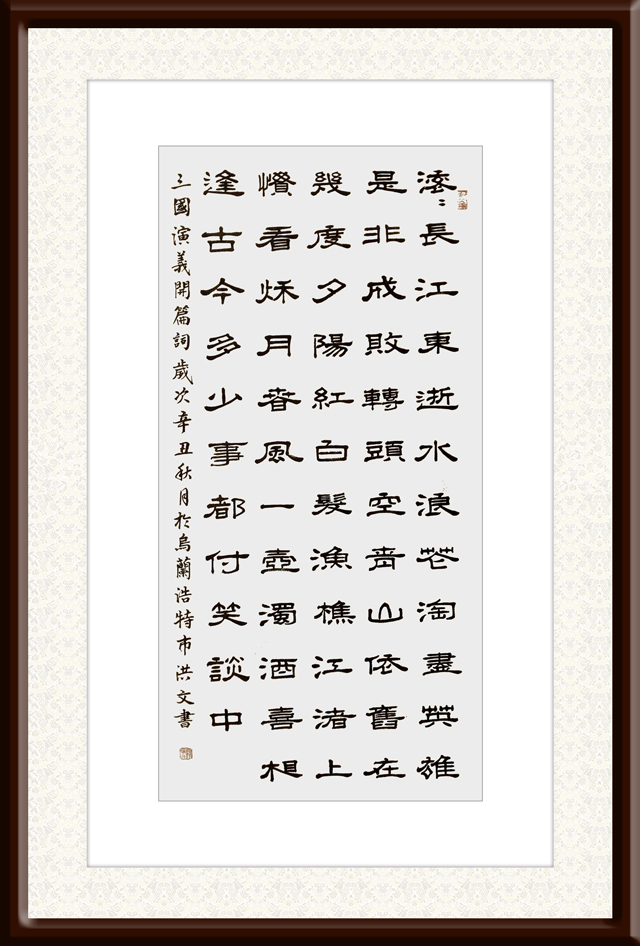 滚〻長江東逝水浪花淘盡英雄
是非成敗轉頭空青山依舊在
幾度夕陽紅白髮漁樵江渚上
慣看秋月春風一壺濁酒喜相
逢古今多少事都付笑談中
三國演義開篇詞歲次辛丑秋月於烏蘭浩特市洪文書